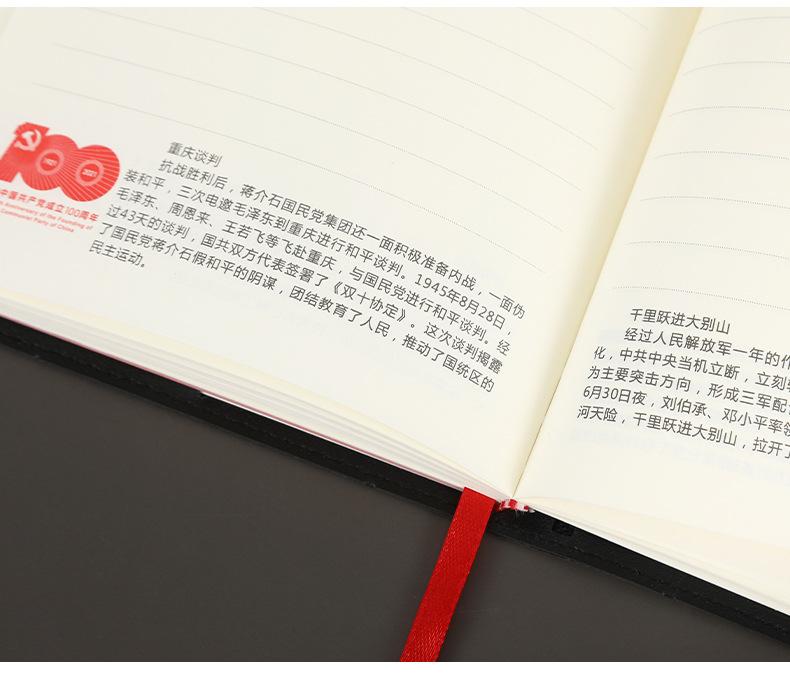 1921
2021
中国共产党成立100周年
th Anniversary of the Founding of
Communist Party of China
重庆谈判
抗战胜利后，蒋介石国民党集团还一面积极准备内战，一面伪
装和平，三次电邀毛泽东到重庆进行和平谈判。1945年8月28日，
毛泽东、周恩来、王若飞等飞赴重庆，与国民党进行和平谈判。经
过43天的谈判，国共双方代表签署了《双十协定》。这次谈判揭露
了国民党蒋介石假和平的阴谋，团结教育了人民，推动了国统区的
民主运动。
千里跃进大别山
经过人民解放军一年的作
化，中共中央当机立断，立刻
为主要突击方向，形成三军配
6月30日夜，刘伯承、邓小平率领
河天险，千里跃进大别山，拉开了